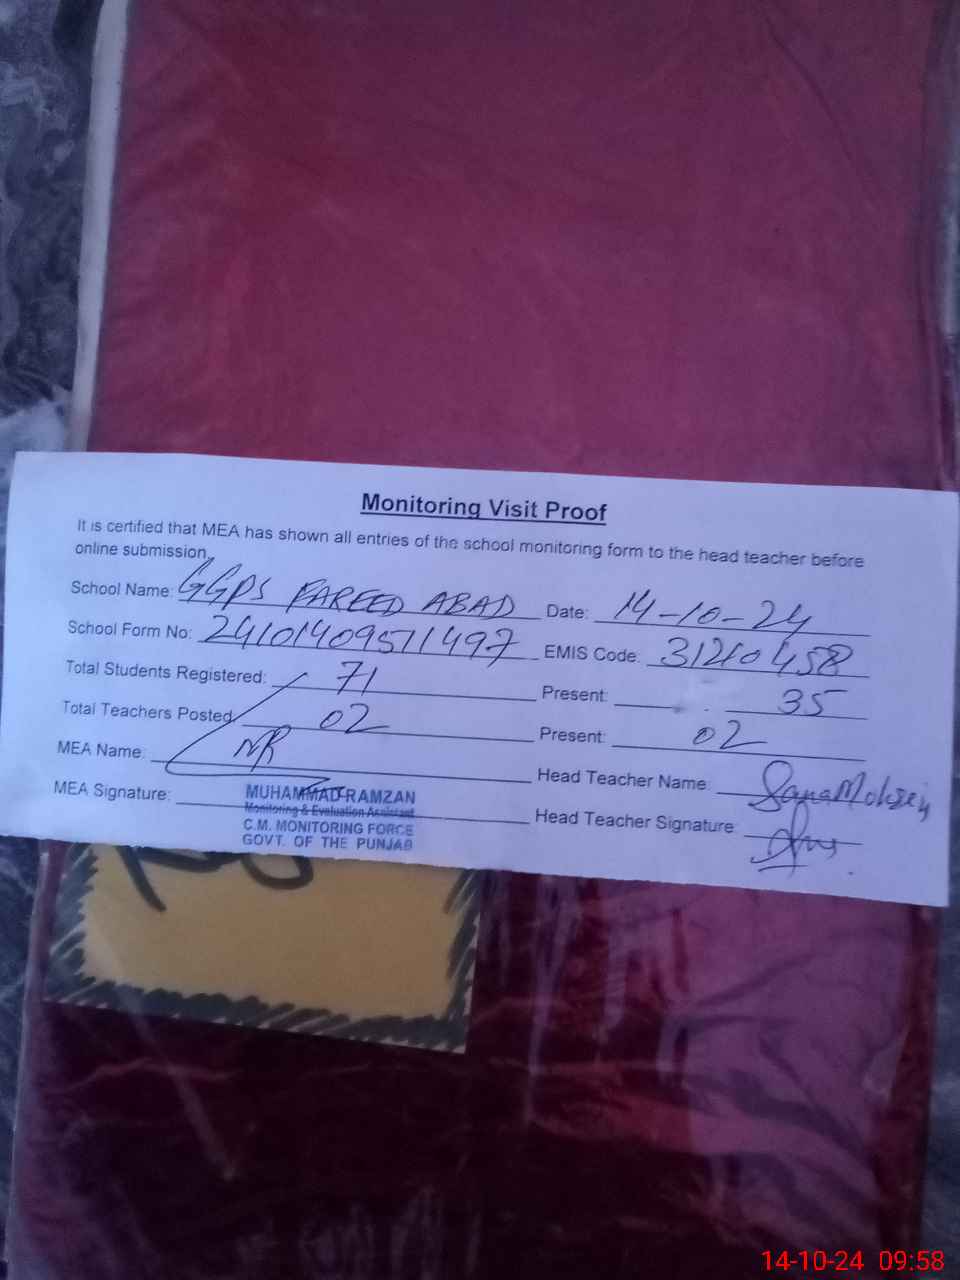 Monitoring Visit Proof
It is certified that MEA has shown all entries of the school monitoring form to the head teacher before
online submission.
School Name: GGPS FAREED ABAD Date: 14-10-24
School Form No: 24101409511497 EMIS Code: 31210458
Total Students Registered: 71 Present: 35
Total Teachers Posted 02 Present: 02
MEA Name: MR Head Teacher Name: Sana Mohsin
MEA Signature: Head Teacher Signature:
MUHAMMAD RAMZAN
Monitoring & Evaluation Assistant
C.M. MONITORING FORCE
GOVT. OF THE PUNJAB
14-10-24 09:58